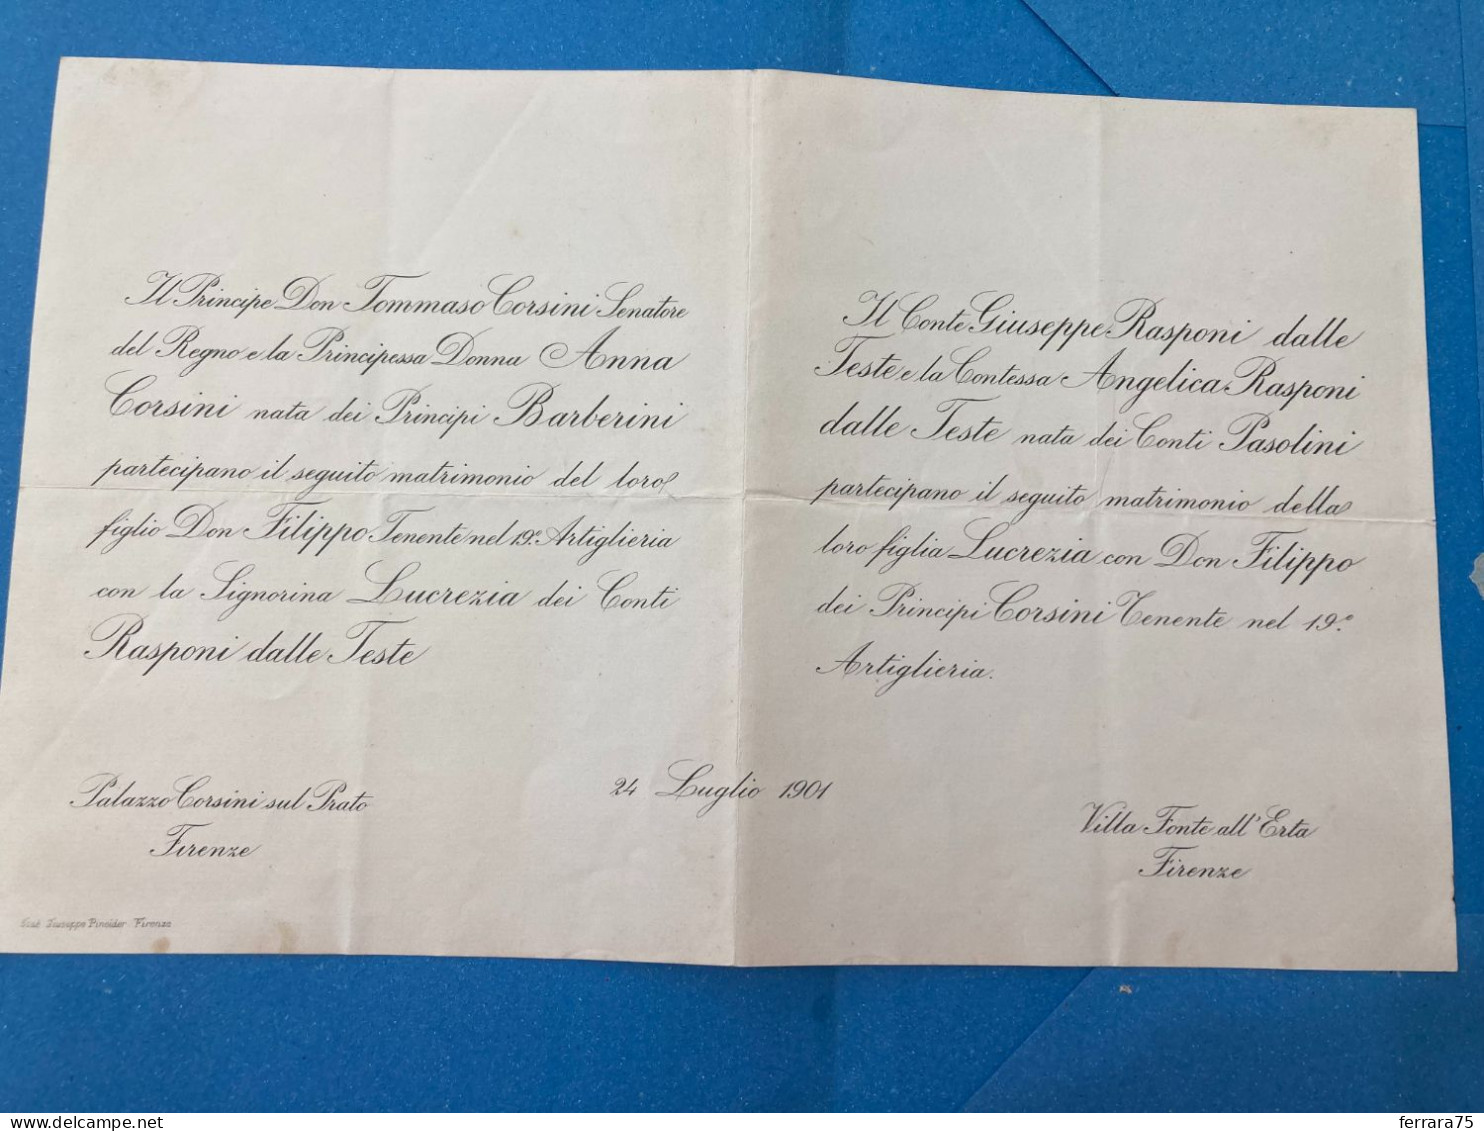 Il Principe Don Tommaso Corsini Senatore
del Regno e la Principessa Donna Anna
Corsini nata dei Principi Barberini
partecipano il seguito matrimonio del loro
figlio Don Filippo Tenente nel 19º Artiglieria
con la Signorina Lucrezia dei Conti
Rasponi dalle Teste
Palazzo Corsini sul Prato
Firenze
24 Luglio 1901
Il Conte Giuseppe Rasponi dalle
Teste e la Contessa Angelica Rasponi
dalle Teste nata dei Conti Pasolini
partecipano il seguito matrimonio della
loro figlia Lucrezia con Don Filippo
dei Principi Corsini Tenente nel 19º
Artiglieria.
Villa Fonte all'Erta
Firenze
Giuseppe Pineider Firenze
ferrara75